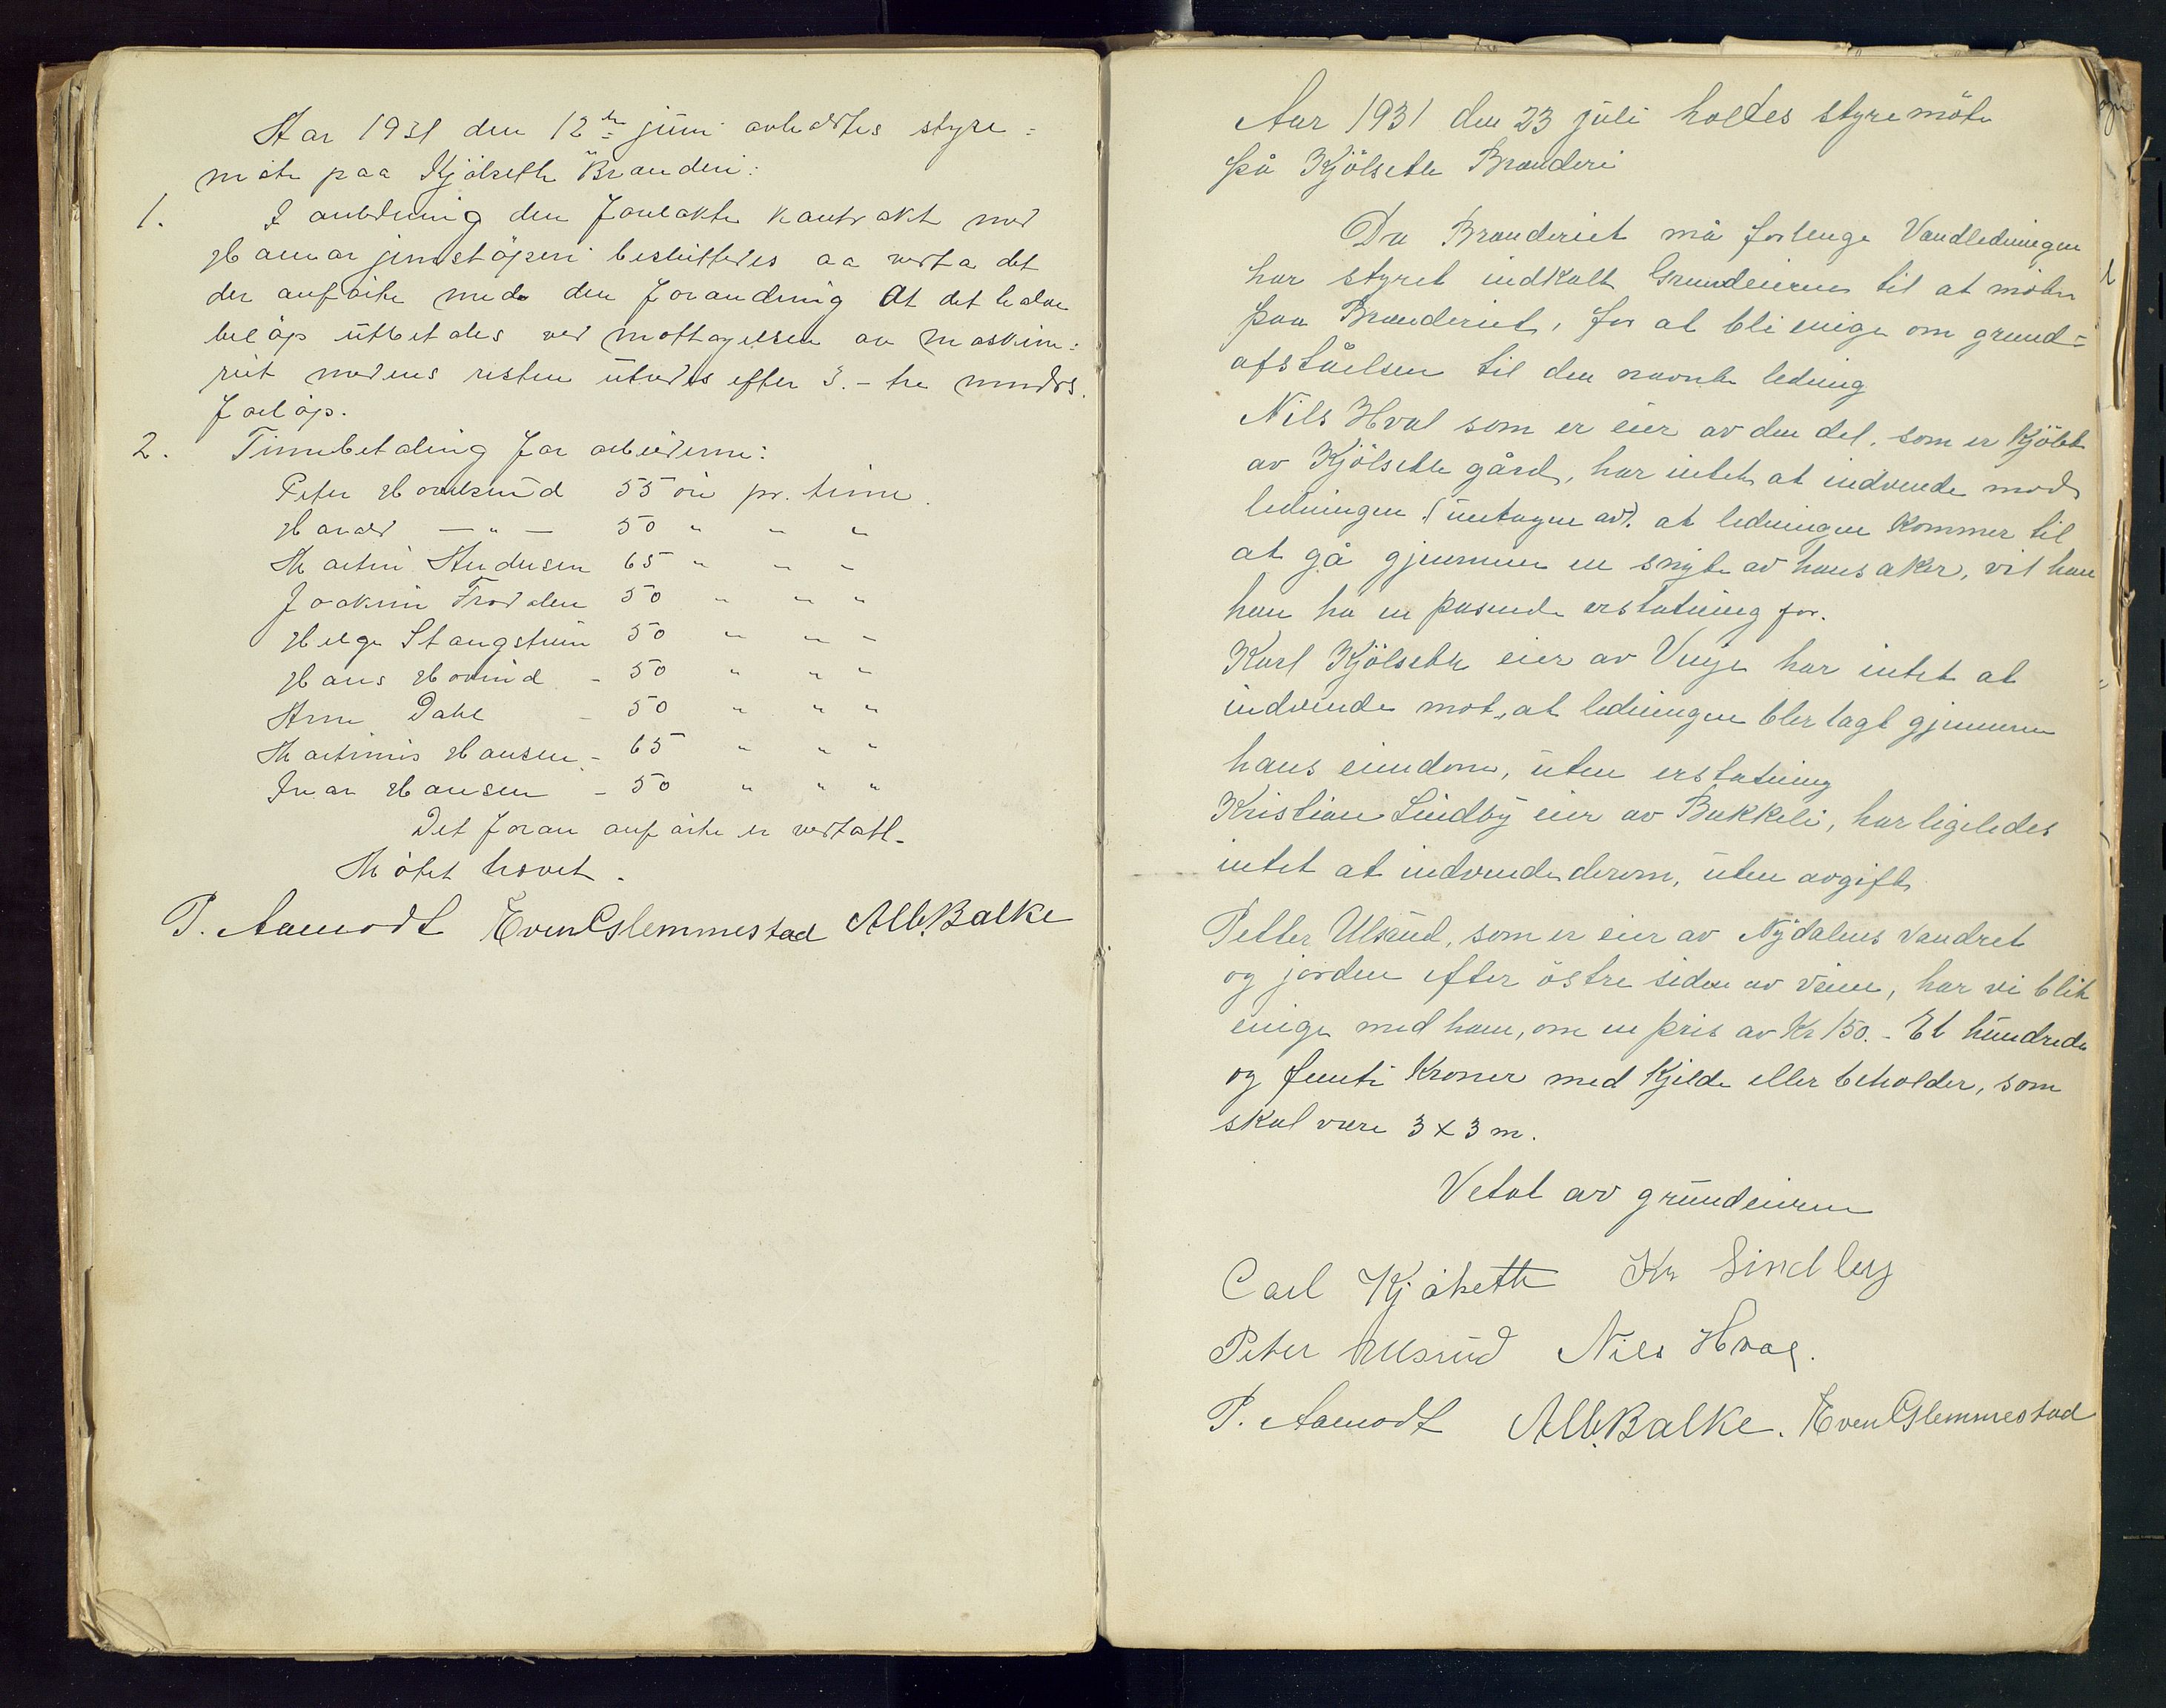 Aar 1931 den 12te juni avholdtes styre=
möte paa Kjölseth Brænderi:
1. I anledning den forelakte kontrakt med
Hamar jernstöperi besluttedes aa vedta det
der anförte med den forandring at det halve
belöp utbetales ved mottagelsen av maskine=
riet medens resten utredes efter 3.- tre mndrs.
forlöp.
2. Timebetaling for arbeiderne:
Peter Hovelsrud 55 öre pr. time.
Harald — " — 50 " " "
Martin Andersen 65 " " "
Joakim Frodalen 50 " " "
Helge Stangstuen 50 " " "
Hans Hovind - 50 " " "
Arne Dahl - 50 " " "
Martinius Hansen - 65 " " "
Ivar Hansen - 50 " " "
Det foran anförte er vedtatt.
Mötet hævet.
P. Aamodt Even Glemmestad Alb. Balke
Aar 1931 den 23 juli holdes styremöte
på Kjölseth Brænderi
Da Brænderiet må forlenge Vandledningen
har styret indkalt Grundeierne til at möte
paa Brænderiet, for at bli enige om grund=
afståelsen til den nævnte ledning
Nils Hval som er eier av den del, som er kjöbt
av Kjölseth gård, har intet at indvende mod
ledningen (untagen av). at ledningen kommer til
at gå gjennem en snyte av hans aker, vil han
han ha en pasende erstatning for.
Karl Kjölseth eier av Vinje har intet at
indvende mot, at ledningen blir lagt gjennem
hans eiendom, uten erstatning
Kristian Lindby eier av Bakkeli, har ligeledes
intet at indvende derom, uten avgift.
Petter Ulsrud, som er eier av Nydalens vandret
og jorden efter östre siden av veien, har vi blit
enige med ham, om en pris av Kr 150.- Et hundrede
og femti Kroner med Kjelde eller beholder, som
skal være 3 x 3 m.
Vetat av grundeierne
Carl Kjölseth Kr Lindby
Peter Ullsrud Nils Hval.
P. Aamodt Alb. Balke. Even Glemmestad